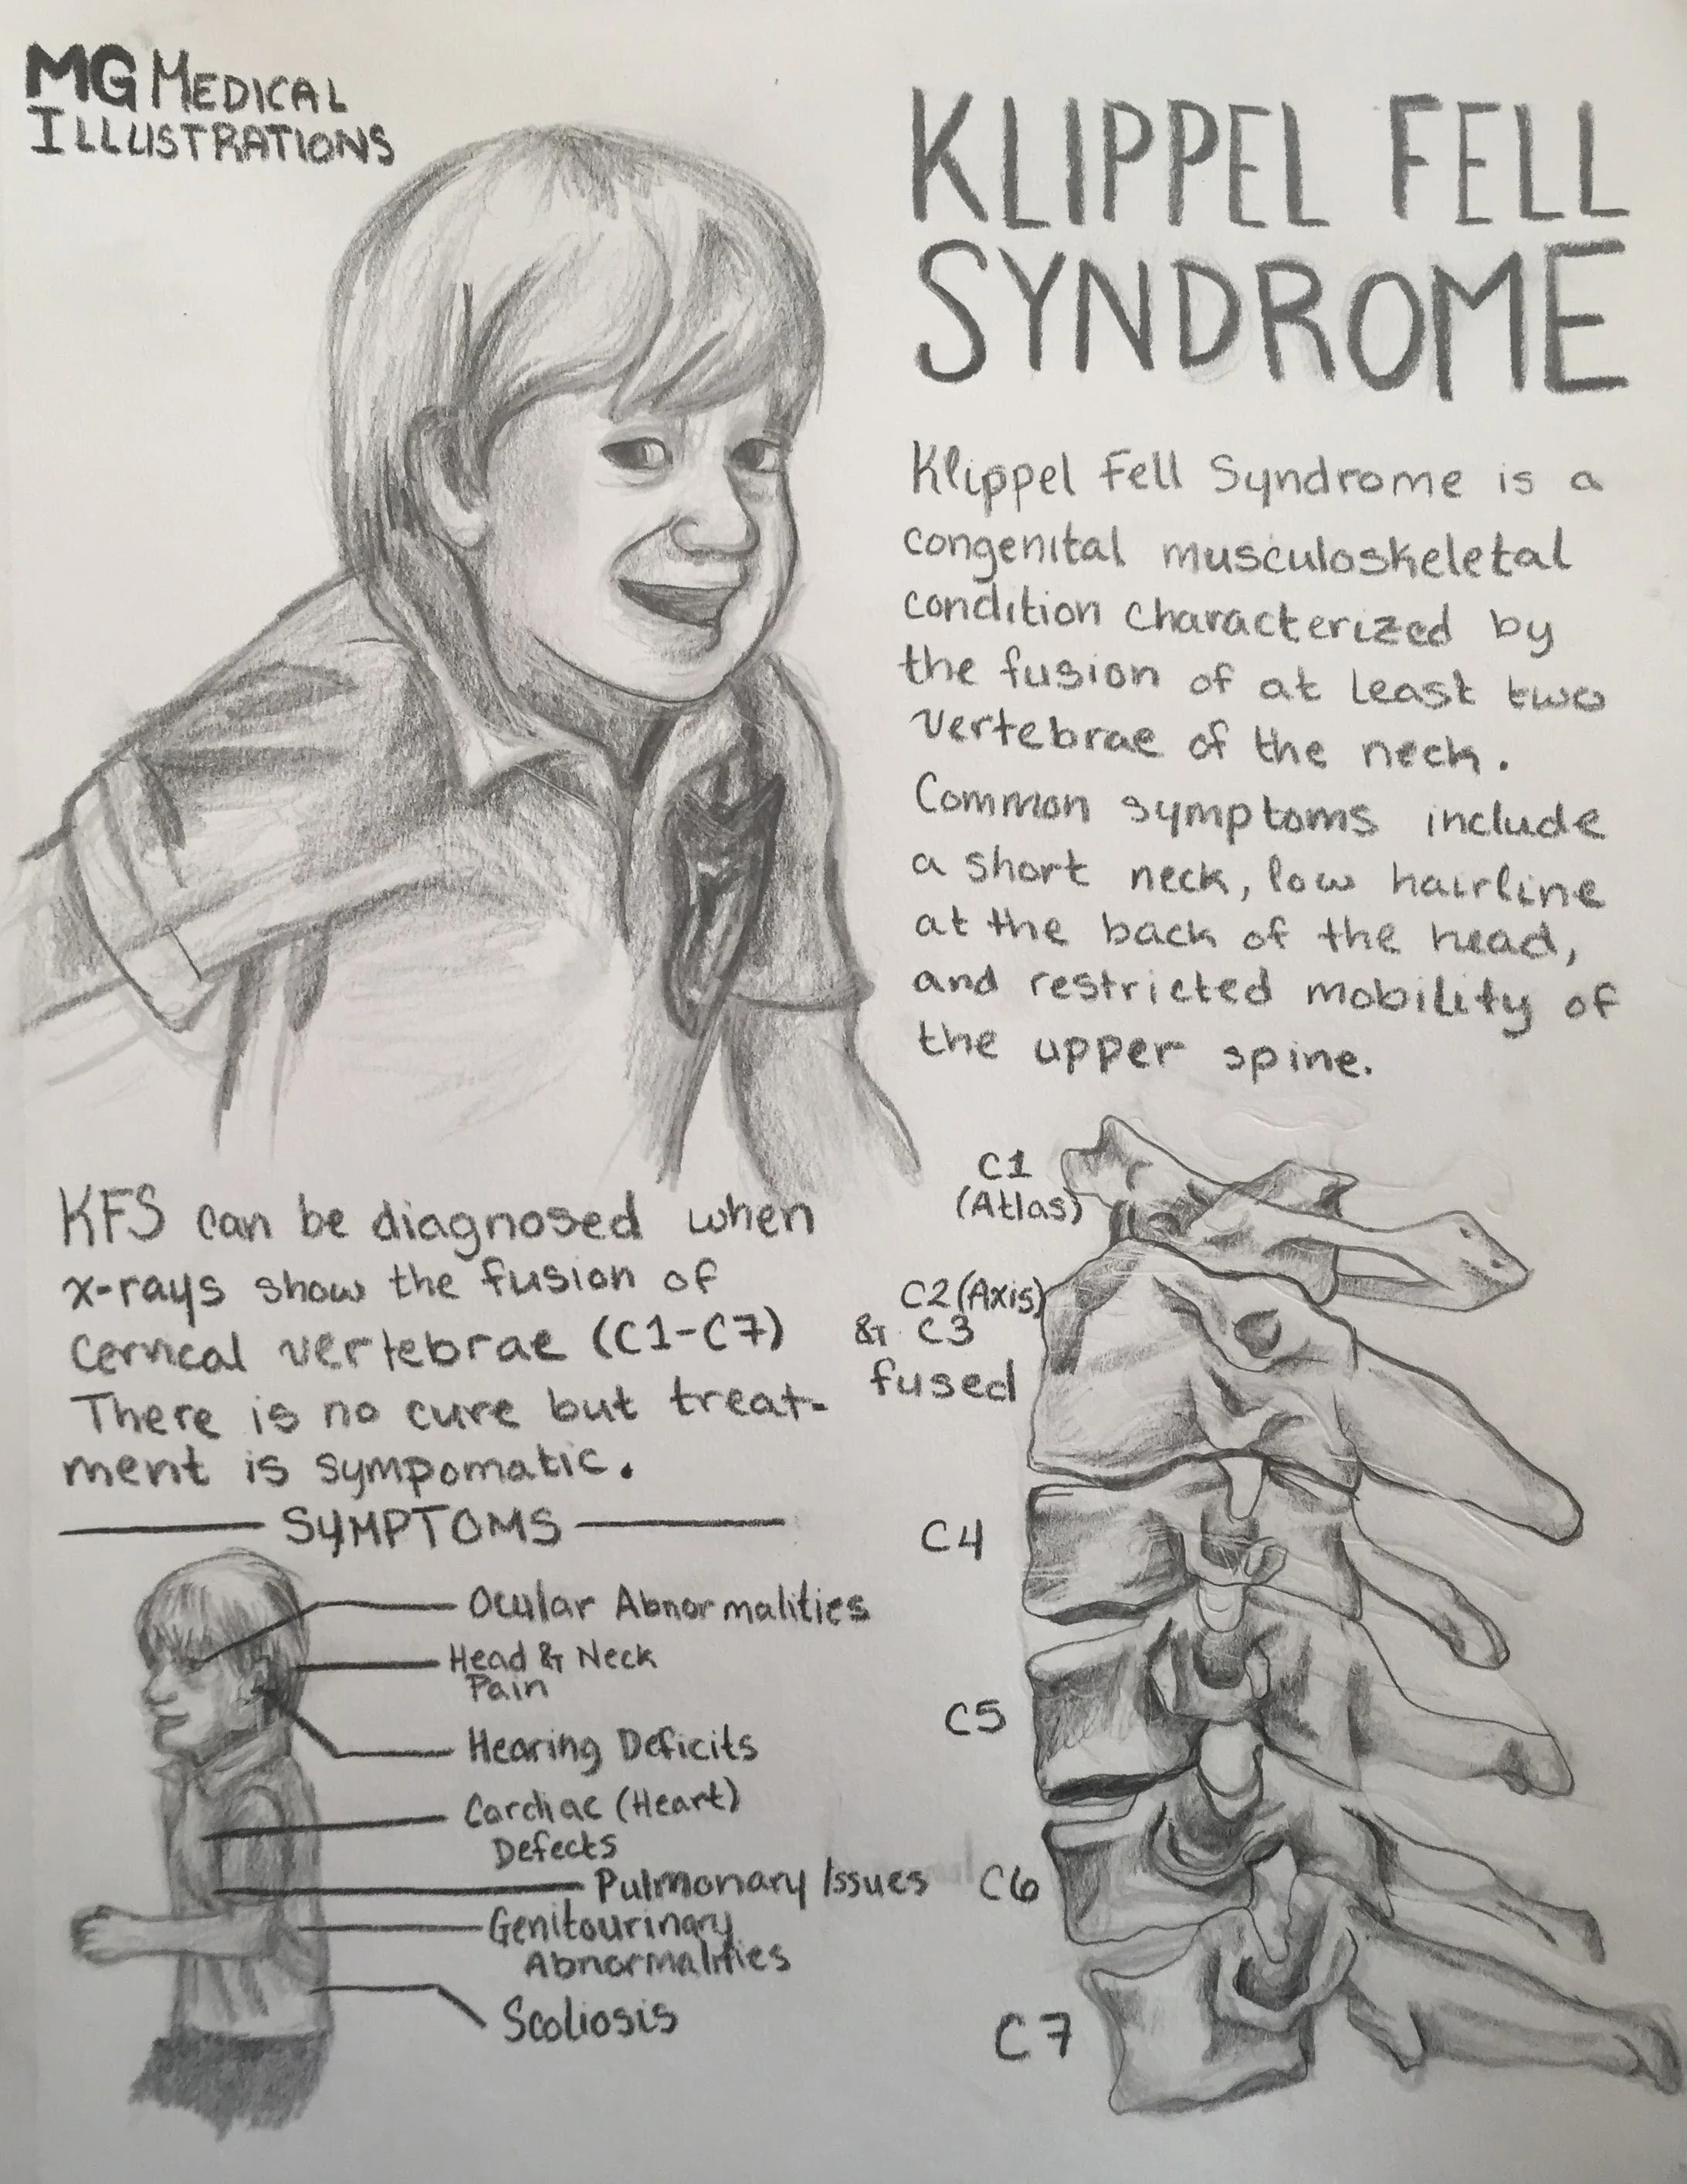 MG MEDICAL
ILLUSTRATIONS
KLIPPEL FELL
SYNDROME
Klippel Fell Syndrome is a
congenital musculoskeletal
condition characterized by
the fusion of at least two
vertebrae of the neck.
Common symptoms include
a short neck, low hairline
at the back of the head,
and restricted mobility of
the upper spine.
KFS can be diagnosed when
x-rays show the fusion of
cervical vertebrae (C1-C7)
There is no cure but treat-
ment is sympomatic.
SYMPTOMS
Ocular Abnormalities
Head & Neck
Pain
Hearing Deficits
Cardiac (Heart)
Defects
Pulmonary Issues
Genitourinary
Abnormalities
Scoliosis
C1
(Atlas)
C2 (Axis)
& C3
fused
C4
C5
C6
C7